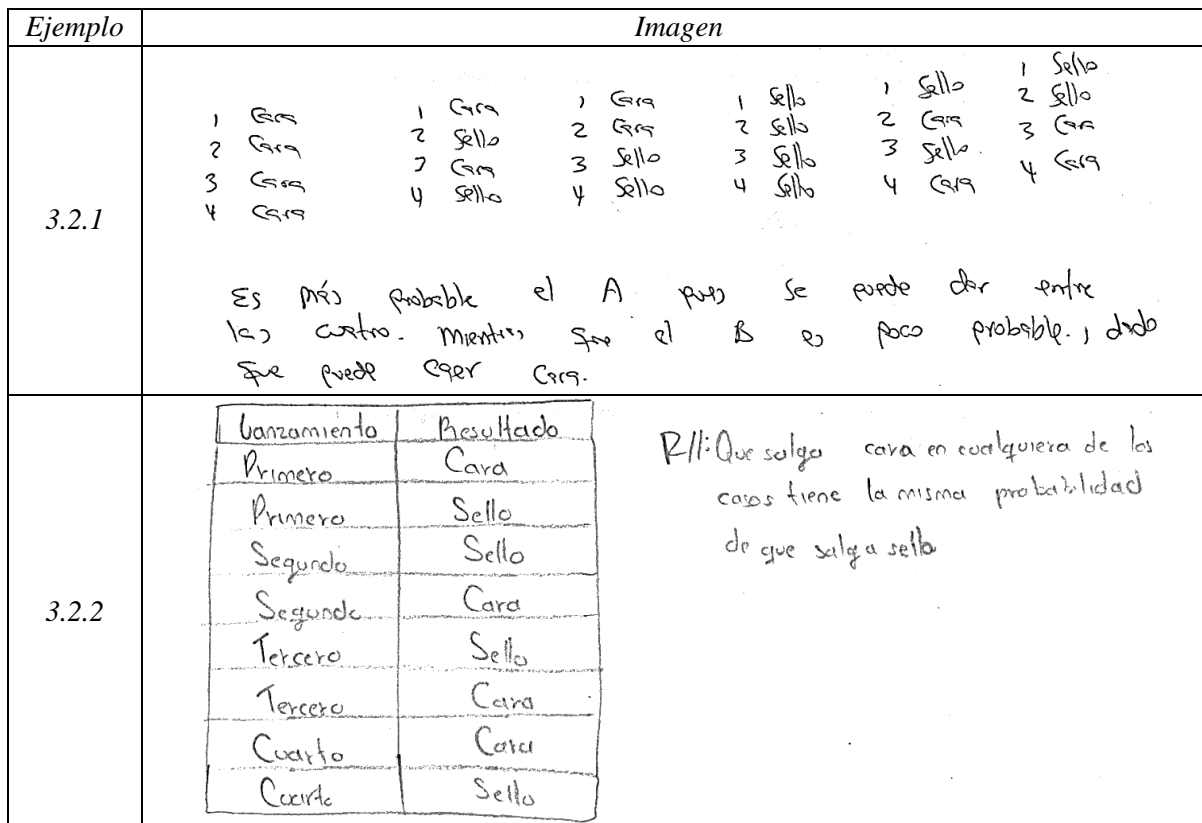 Ejemplo Imagen
3.2.1
1 Cara
2 Cara
3 Cara
4 Cara
1 Cara
2 Sello
3 Cara
4 Sello
1 Cara
2 Cara
3 Sello
4 Sello
1 Sello
2 Sello
3 Sello
4 Sello
1 Sello
2 Cara
3 Sello.
4 Cara
1 Sello
2 Sello
3 Cara
4 Cara
Es más probable el A pues se puede dar entre
las cuatro. Mientras que el B es poco probable., dado
que puede caer Cara.
3.2.2
Lanzamiento Resultado
Primero Cara
Primero Sello
Segundo Sello
Segundo Cara
Tercero Sello
Tercero Cara
Cuarto Cara
Cuarto Sello
R//: Que salga cara en cualquiera de los
casos tiene la misma probabilidad
de que salga sello